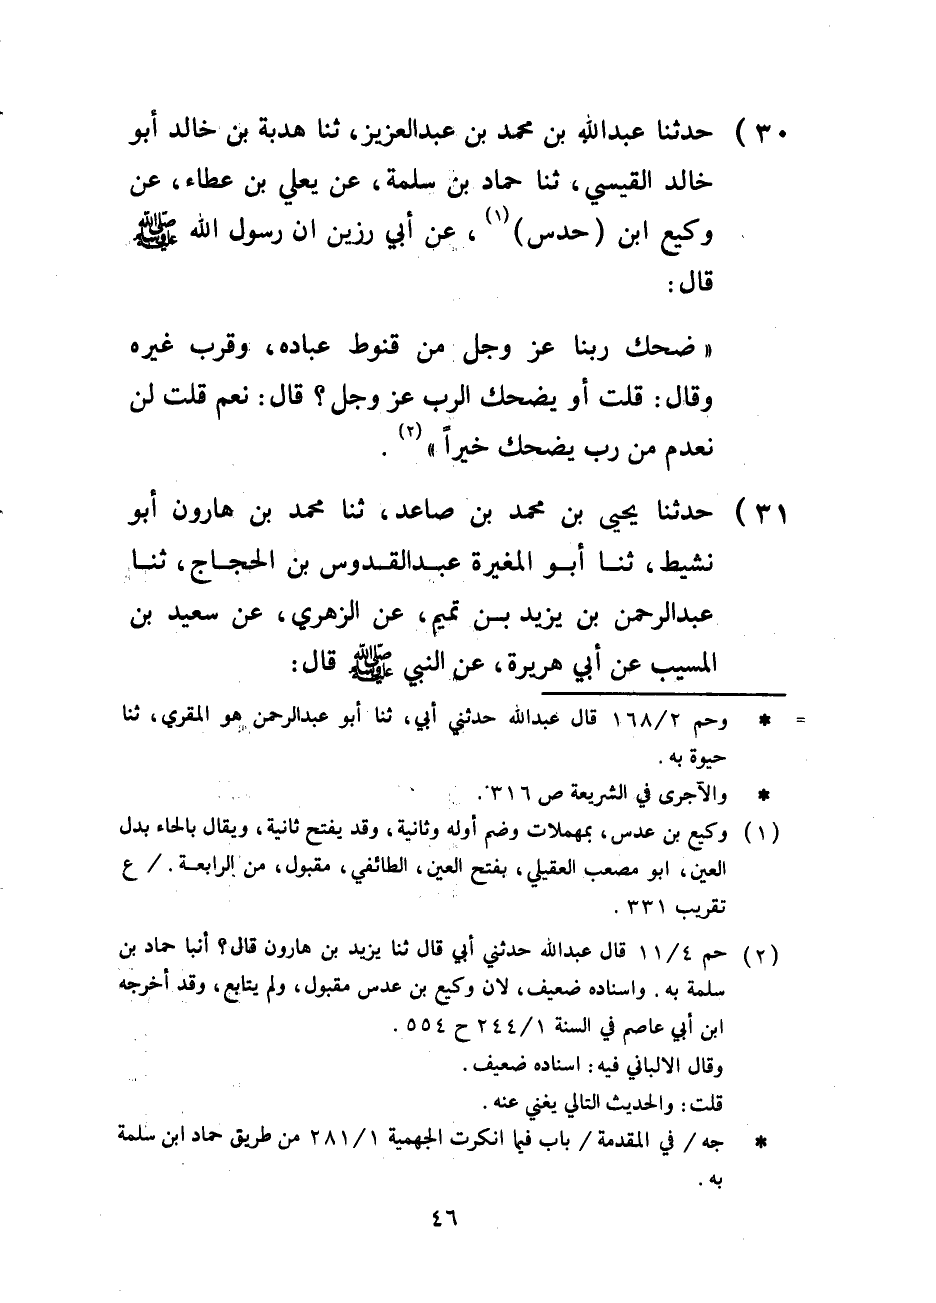 ٣٠) حدثنا عبدالله بن محمد بن عبدالعزيز، ثنا هدبة بن خالد أبو
خالد القيسي، ثنا حماد بن سلمة، عن يعلي بن عطاء، عن
وكيع ابن (حدس)(١)، عن أبي رزين ان رسول الله ﷺ
قال:
« ضحك ربنا عز وجل من قنوط عباده، وقرب غيره
وقال: قلت أو يضحك الرب عز وجل؟ قال: نعم قلت لن
نعدم من رب يضحك خيراً »(٢).
٣١) حدثنا يحيى بن محمد بن صاعد، ثنا محمد بن هارون أبو
نشيط، ثنا أبو المغيرة عبدالقدوس بن الحجاج، ثنا
عبدالرحمن بن يزيد بن تميم، عن الزهري، عن سعيد بن
المسيب عن أبي هريرة، عن النبي ﷺ قال:
= * وحم ١٦٨/٢ قال عبدالله حدثني أبي، ثنا أبو عبدالرحمن هو المقري، ثنا
حيوة به.
* والآجرى في الشريعة ص ٣١٦.
(١) وكيع بن عدس، بمهملات وضم أوله وثانية، وقد يفتح ثانية، ويقال بالحاء بدل
العين، ابو مصعب العقيلي، بفتح العين، الطائفي، مقبول، من الرابعة. / ع
تقريب ٣٣١.
(٢) حم ١١/٤ قال عبدالله حدثني أبي قال ثنا يزيد بن هارون قال؟ أنبا حماد بن
سلمة به. واسناده ضعيف، لان وكيع بن عدس مقبول، ولم يتابع، وقد أخرجه
ابن أبي عاصم في السنة ٢٤٤/١ ح ٥٥٤.
وقال الالباني فيه: اسناده ضعيف.
قلت: والحديث التالي يغني عنه.
* جه / في المقدمة / باب فيما انكرت الجهمية ٢٨١/١ من طريق حماد ابن سلمة
به.
٤٦